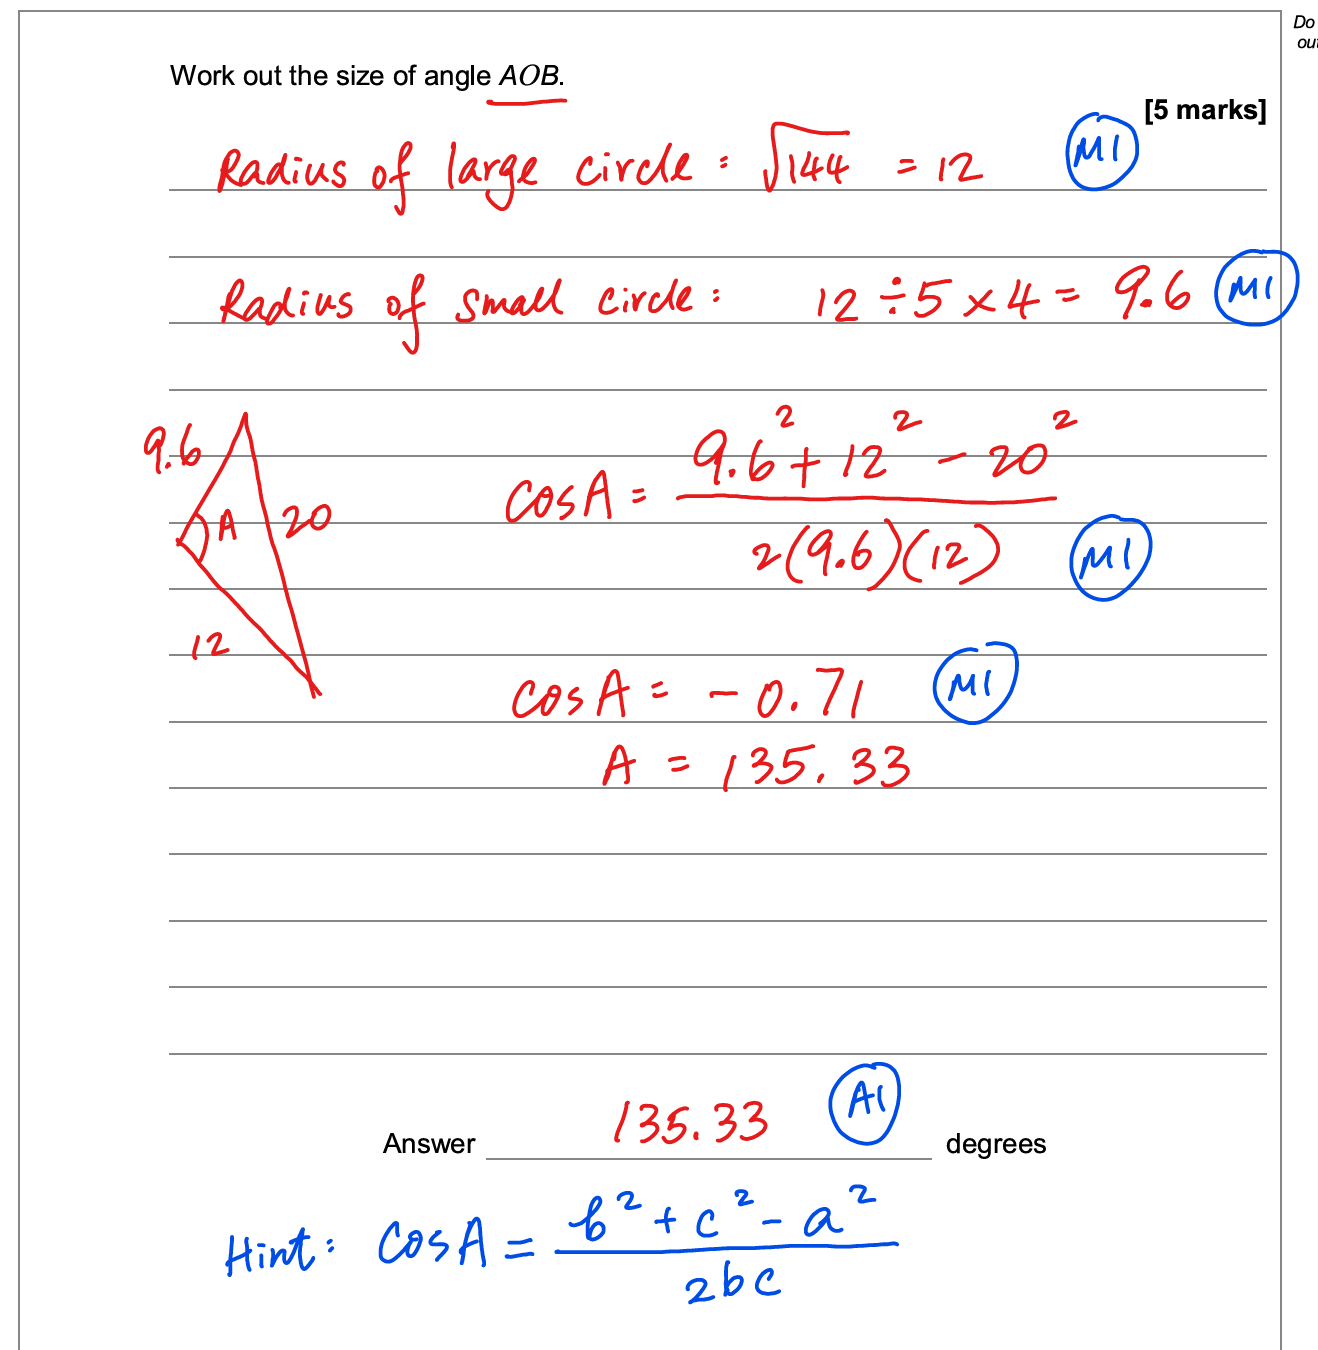 Do
out
Work out the size of angle AOB.
[5 marks]
Radius of large circle : √144 = 12 M1
Radius of small circle : 12 ÷ 5 × 4 = 9.6 M1
9.6
A 20
12
cosA = (9.6² + 12² - 20²) / 2(9.6)(12) M1
cosA = -0.71 M1
A = 135.33
Answer 135.33 A1 degrees
Hint: cosA = (b² + c² - a²) / 2bc